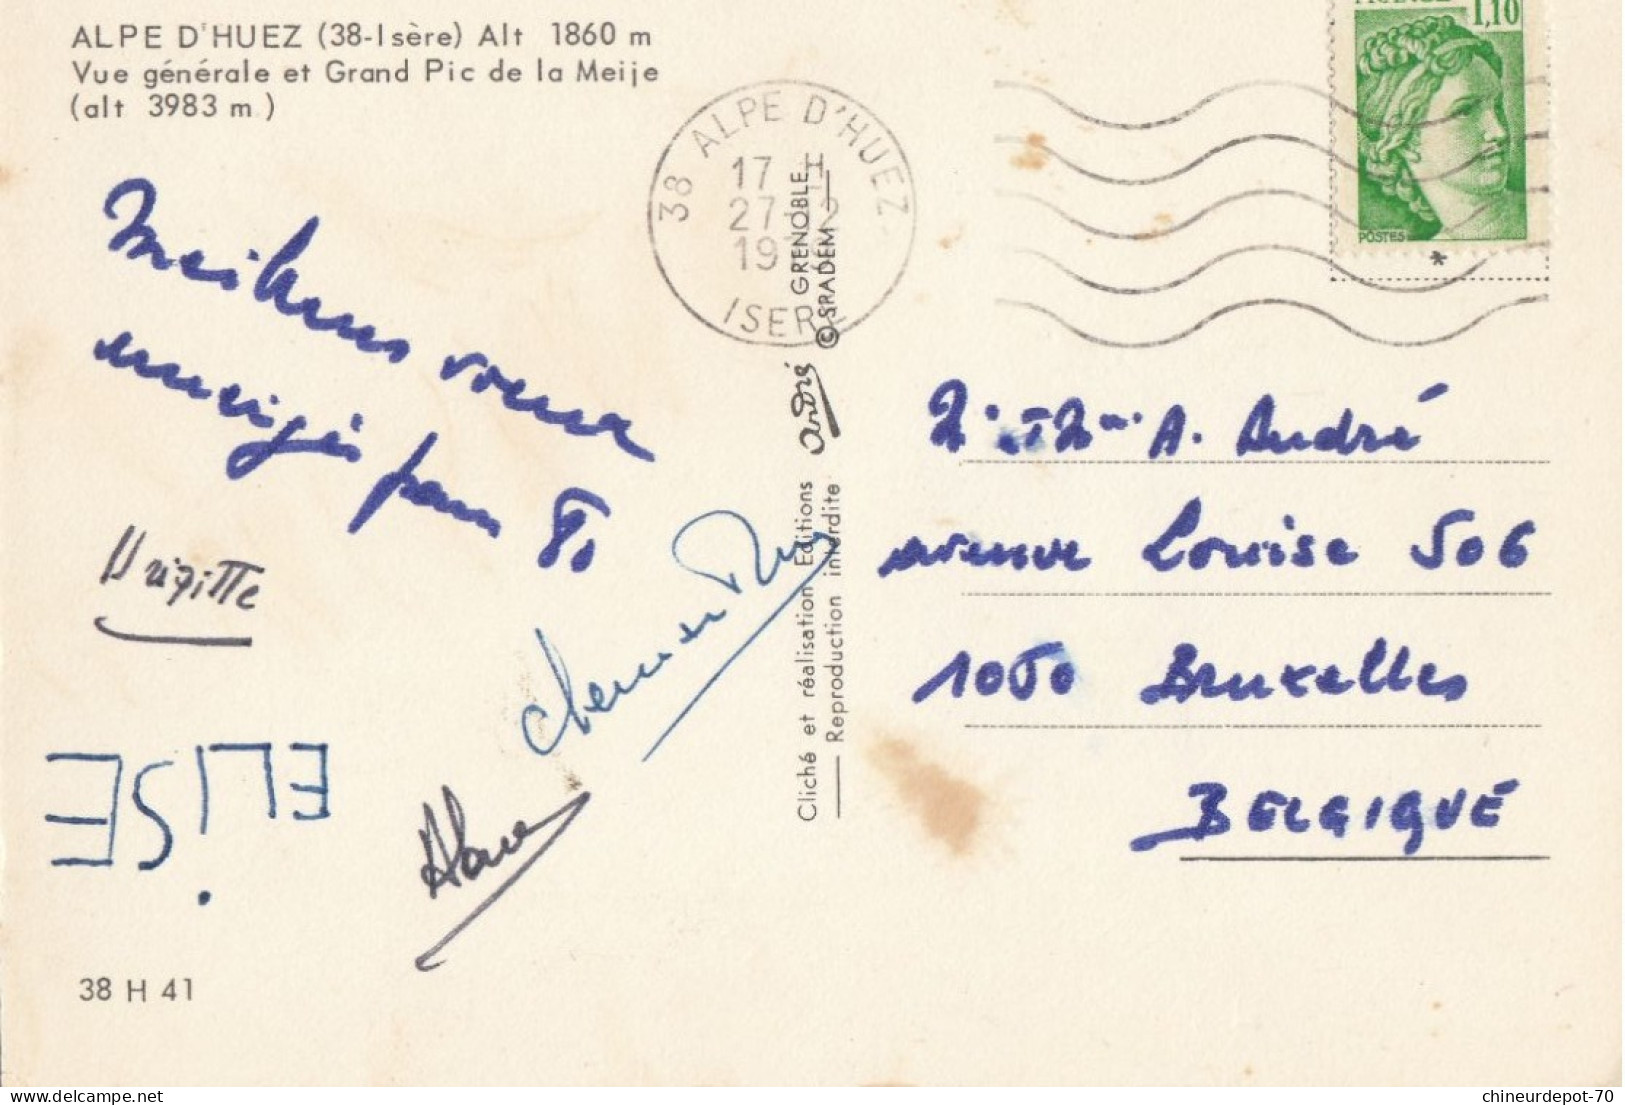 ALPE D'HUEZ (38-Isère) Alt 1860 m
Vue générale et Grand Pic de la Meije
(alt 3983 m.)
FRANCE 1,10
POSTES
38 ALPE D'HUEZ
17 H
27-12
19
ISERE
GRENOBLE
© SPADEM
andré
Cliché et réalisation Editions
Reproduction interdite
Meilleurs vœux
enneigés pour 80
Brigitte
ELiSE
38 H 41
A. André
avenue Louise 506
1050 Bruxelles
BELGIQUE
chineurdepot-70